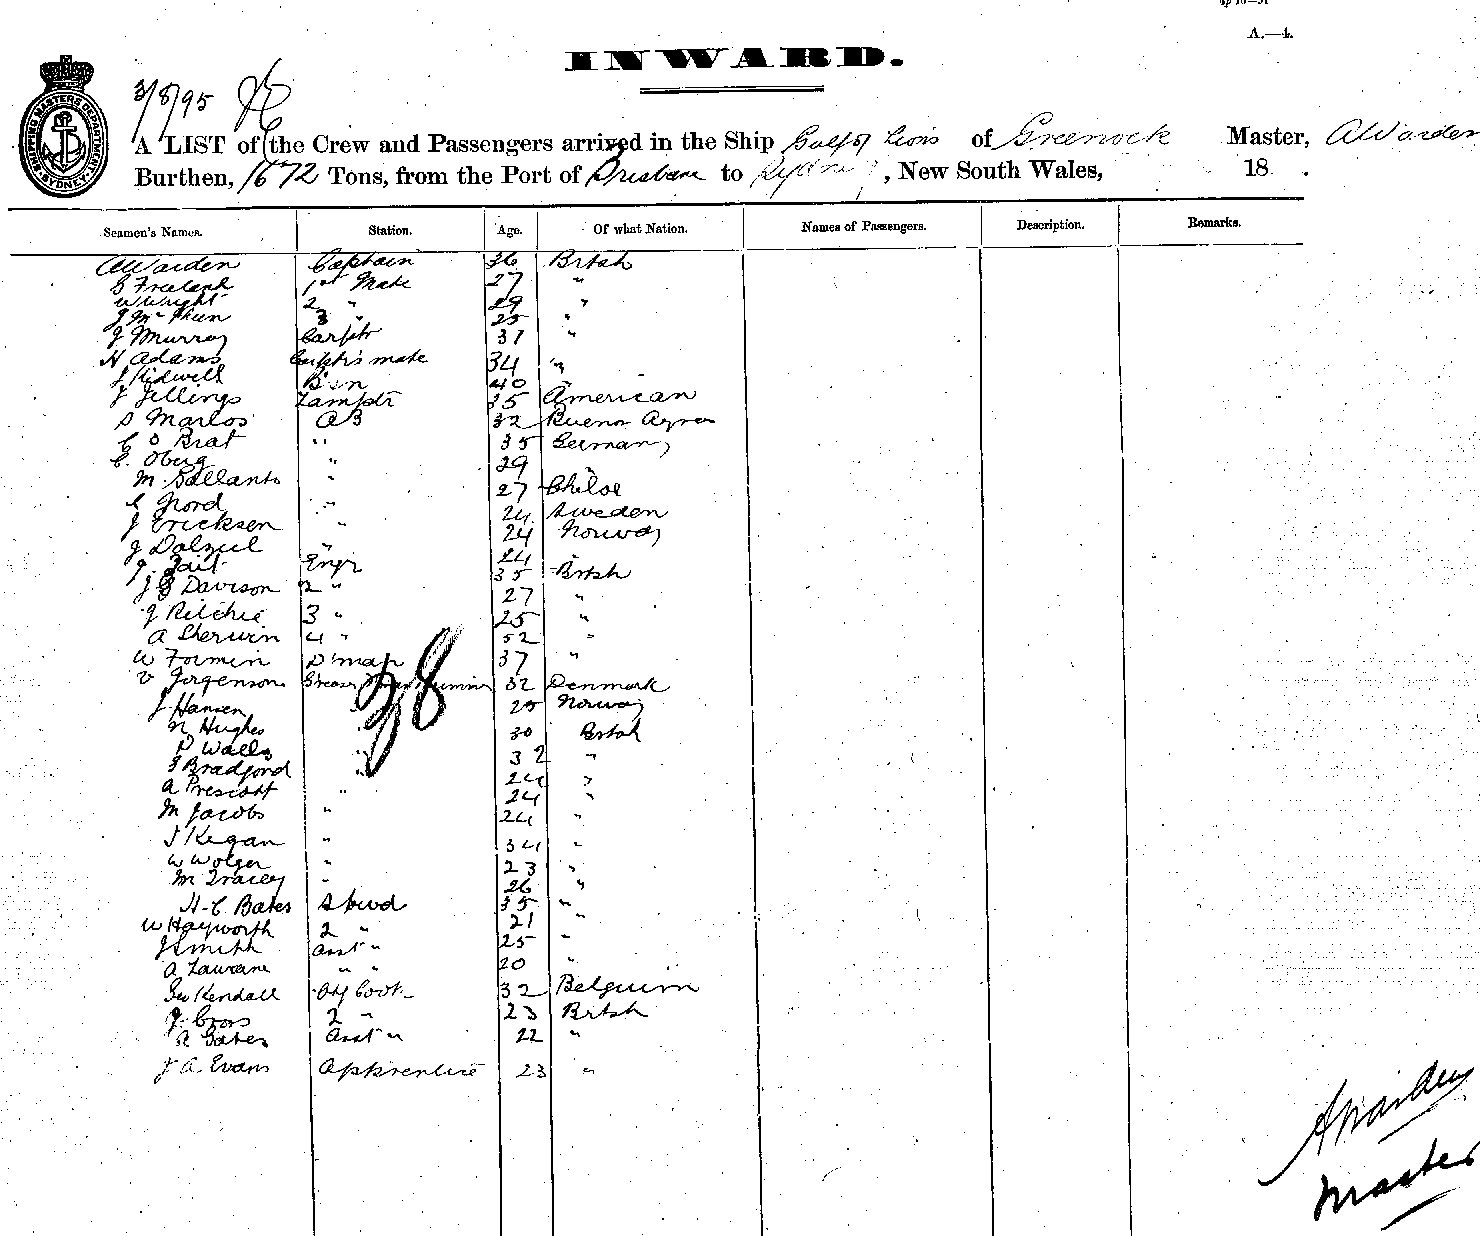 A.—4.
INWARD.
SHIPPING MASTERS DEPARTMENT SYDNEY
3/8/95
A LIST of the Crew and Passengers arrived in the Ship Gulf of Lions of Greenock Master, A Warden
Burthen, 1672 Tons, from the Port of Brisbane to Sydney, New South Wales, 18 .
Seamen's Names. Station. Age. Of what Nation. Names of Passengers. Description. Remarks.
A Warden Captain 36 Brtsh
1st Mate 27 "
W Wright 2 " 29 "
3 " 25 "
J Murray Carptr 31 "
H Adams mate 34 "
J Kidwell B'sn 40 "
J Jellings Lamptr 35 American
S Marlos AB 32 Buenos Ayres
Brat " 35 Germany
C. Oberg " 29
M. Gallants " 27 Chiloe
C Nord " 24 Sweden
J Ericksen " 24 Norway
J Dalziel " 24
J. Tait Engr 35 Brtsh
J G Davison 2 " 27 "
J Ritchie 3 " 25 "
A Sherwin 4 " 52 "
W Formin D'man 37 "
V Jorgenson Greaser 32 Denmark
J Hansen " 25 Norway
N Hughes " 30 Brtsh
P Walls " 32 "
Bradford " 24 "
A Prescott " 24 "
M Jacobs " 24 "
J Kegan " 34 "
W Wolger " 23 "
M Tracey " 26 "
H. C. Bates Stwd 35 "
W Hayworth 2 " 21 "
J Smith Asst " 25 "
A " " 20 "
Geo Kendall Cook 32 Belguim
J. Cross 2 " 23 Brtsh
A Gates Asst " 22 "
J A Evans Apprentice 23 "
38
A Warden
Master